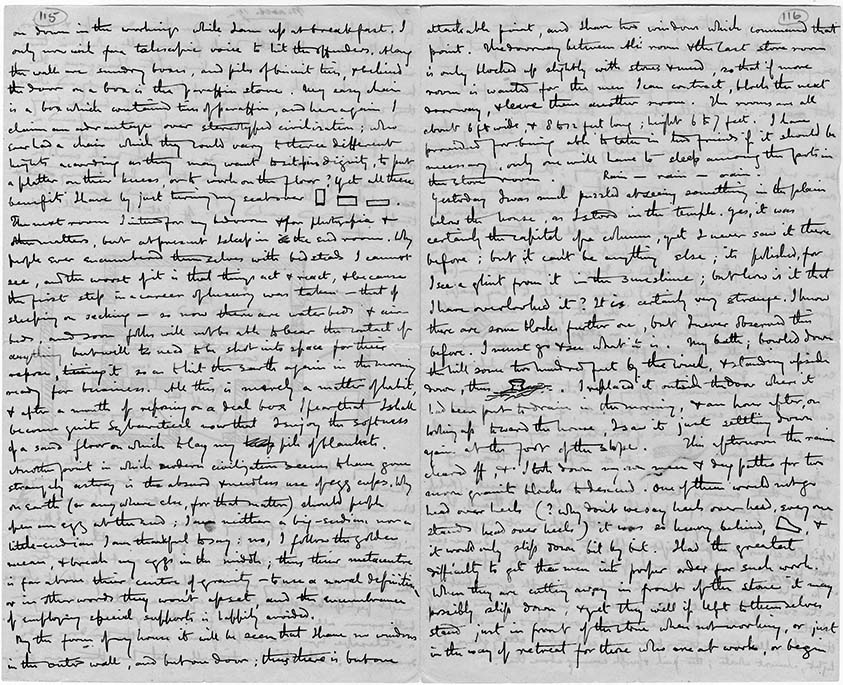 115
on down in the workings while I am up at breakfast. I
only now with fine telescopic voice to hit the offenders. Along
the wall are sundry boxes, and piles of biscuit tins, & behind
the door on a box is the paraffin stove. My easy chair
is a box which contained tins of paraffin, and here again I
claim an advantage over stereotyped civilisation; who
ever had a chair which they could vary to three different
heights according as they may want to sit in dignity, to put
a platter on their knees, or to work on the floor? Yet all these
benefits I have by just turning my seat over
The next room I intend for my bedroom & for photographs &
other matters, but at present I sleep in the end room. Why
people ever encumbered themselves with bedsteads I cannot
see, and the worst of it is that things act & react, & because
the first step in a career of luxury was taken – that of
sleeping on sacking – so now there are water beds & air
beds, and soon folks will not be able to bear the contact of
anything but will need to be shot into space for their
repose so as to hit the earth again in the morning
ready for business. All this is merely a matter of habit,
& after a month of reposing on a deal box I fear that I shall
become quite Sybaritical now that I enjoy the softness
of a sand floor on which to lay my pile of blankets.
Another point in which modern civilization seems to have gone
strangely astray is the absurd & needless use of egg cups. Why
on earth (or anywhere else, for that matter) should people
open an egg at the end; I am neither a big-endian nor a
little-endian I am thankful to say; no, I follow the golden
mean, & break my eggs in the middle; thus their metacentre
is far above their centre of gravity – to use a naval definition
or in other words they won't upset, and the encumbrance
of employing special supports is happily avoided.
By the form of my house it will be seen that I have no windows
in the outer wall, and but one door; thus there is but one
116
attackable point, and I have two windows which command that
point. The doorway between this room & the last store room
is only blocked up slightly with stones & mud, so that if more
room is wanted for the men I can contract, block the next
doorway, & leave them another room. The rooms are all
about 6 ft wide, & 8 to 12 feet long; height 6 to 7 feet. I have
provided for being able to take in two friends if it should be
necessary, only one will have to sleep among the pots in
the store room. Rain – rain – rain!
Yesterday I was much puzzled at seeing something in the plain
below the house, as I stood in the temple. Yes, it was
certainly the capital of a column, yet I never saw it there
before; but it can't be anything else; it is polished, for
I see a glint from it in the sunshine; but how is it that
I have overlooked it? It is certainly very strange. I know
there are some blocks further on, but I never observed this
before. I must go & see what it is. My bath; bowled down
the hill some two hundred feet by the wind, & standing upside
down, thus . I replaced it outside the door where it
had been put to drain in the morning, & an hour after, on
looking up toward the house, I saw it just settling down
again at the foot of the slope. This afternoon the rain
cleared off, & I took down my men & dug paths for two
more granite blocks to descend. One of them would not go
head over heels (? Why don't we say heels over head, every one
stands head over heels!) it was so heavy behind, , &
it would only slip down bit by bit. I had the greatest
difficulty to get the men into proper order for such work.
When they are cutting away in front of the stone it may
possibly slip down; & yet they will if left to themselves
stand just in front of the stone when not working, or just
in the way of retreat for those who are at work, or begin